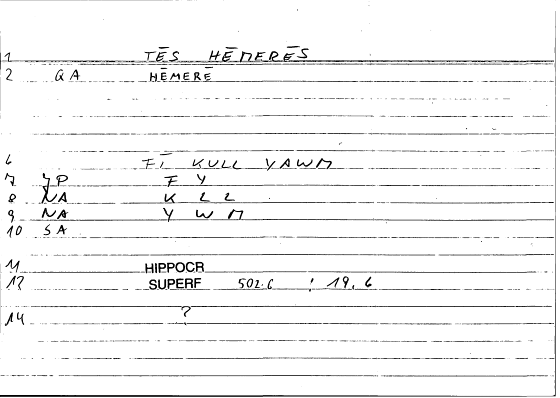 1 TĒS HĒMERĒS
2 QA HĒMERĒ
6 FĪ KULL YAWM
7 JP F Y
8 NA K L L
9 NA Y W M
10 SA
11 HIPPOCR
12 SUPERF 502.6 : 19, 6
14 ?